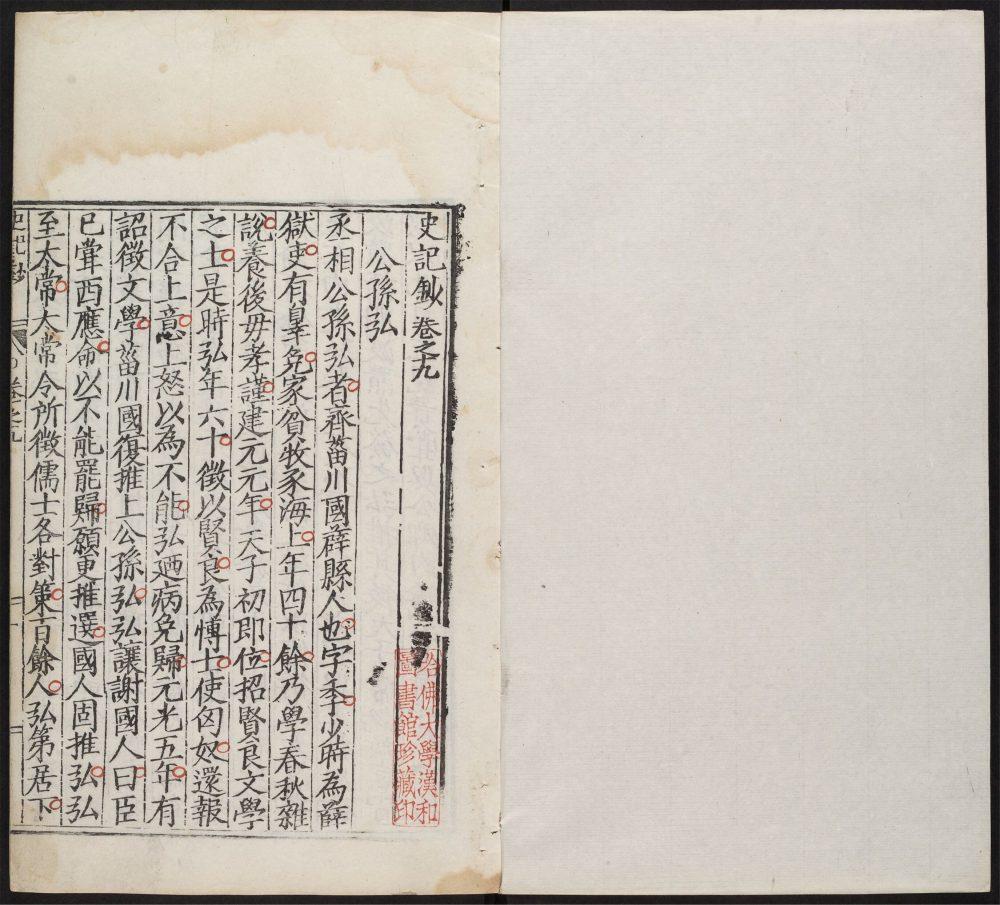 史記鈔卷之九
公孫弘
丞相公孫弘者齊菑川國薛縣人也字季少時為薛
獄吏有辠免家貧牧豕海上年四十餘乃學春秋雜
說養後母孝謹建元元年天子初即位招賢良文學
之士是時弘年六十徵以賢良為博士使匈奴還報
不合上意上怒以為不能弘迺病免歸元光五年有
詔徵文學菑川國復推上公孫弘弘讓謝國人曰臣
已甞西應命以不能罷歸願更推選國人固推弘弘
至太常太常令所徵儒士各對策百餘人弘第居下
史記鈔 卷之九
哈佛大學漢和
圖書館珍藏印